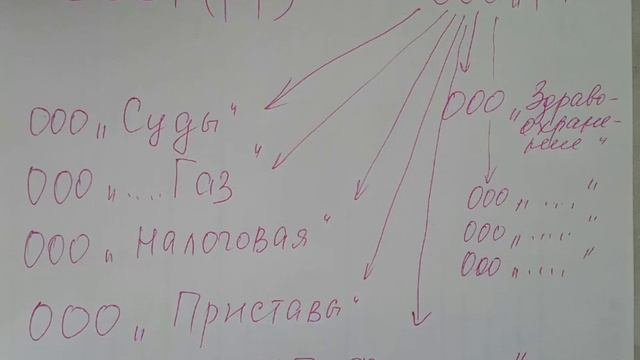 ООО „Суды“
ООО „....Газ“
ООО „Налоговая“
ООО „Приставы“
ООО „Здраво-
охране-
ние“
ООО „....“
ООО „....“
ООО „....“